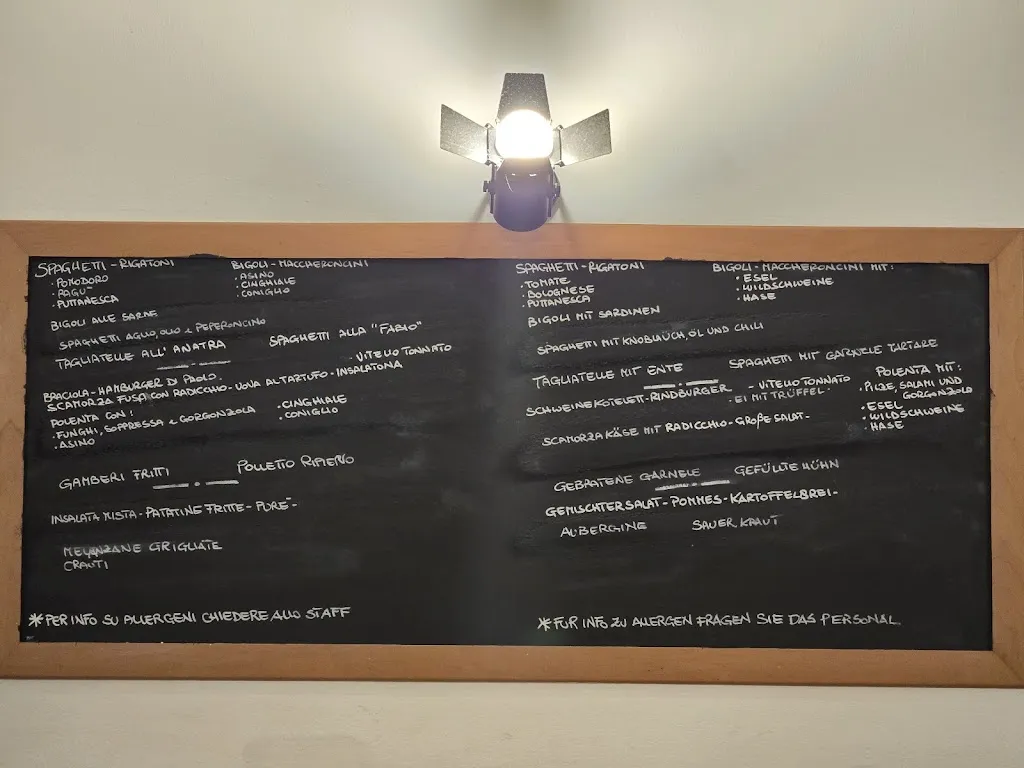 SPAGHETTI - RIGATONI
· POMODORO
· RAGU'
· PUTTANESCA
BIGOLI - MACCHERONCINI
· ASINO
· CINGHIALE
· CONIGLIO
BIGOLI ALLE SARDE
SPAGHETTI AGLIO, OLIO E PEPERONCINO
TAGLIATELLE ALL' ANATRA
SPAGHETTI ALLA "FABIO"
BRACIOLA - HAMBURGER DI PAOLO.
- VITELLO TONNATO
SCAMORZA FUSA CON RADICCHIO - UOVA AL TARTUFO - INSALATONA
POLENTA CON:
· FUNGHI, SOPPRESSA E GORGONZOLA
· ASINO
· CINGHIALE
· CONIGLIO
GAMBERI FRITTI
POLLETTO RIPIENO
INSALATA MISTA - PATATINE FRITTE - PURE' -
MELANZANE GRIGLIATE
CRAUTI
* PER INFO SU ALLERGENI CHIEDERE ALLO STAFF
SPAGHETTI - RIGATONI
· TOMATE
· BOLOGNESE
· PUTTANESCA
BIGOLI - MACCHERONCINI MIT:
· ESEL
· WILDSCHWEINE
· HASE
BIGOLI MIT SARDINEN
SPAGHETTI MIT KNOBLAUCH, ÖL UND CHILI
TAGLIATELLE MIT ENTE
SPAGHETTI MIT GARNELE TARTARE
SCHWEINEKOTELETT - RINDBURGER
- VITELLO TONNATO
- EI MIT TRÜFFEL -
SCAMORZA KÄSE MIT RADICCHIO - GROßE SALAT -
POLENTA MIT:
· PILZE, SALAMI UND
GORGONZOLA
· ESEL
· WILDSCHWEINE
· HASE
GEBRATENE GARNELE
GEFÜLTE HÜHN
GEMISCHTERSALAT - POMMES - KARTOFFELBREI -
AUBERGINE
SAUER KRAUT
* FÜR INFO ZU ALLERGEN FRAGEN SIE DAS PERSONAL